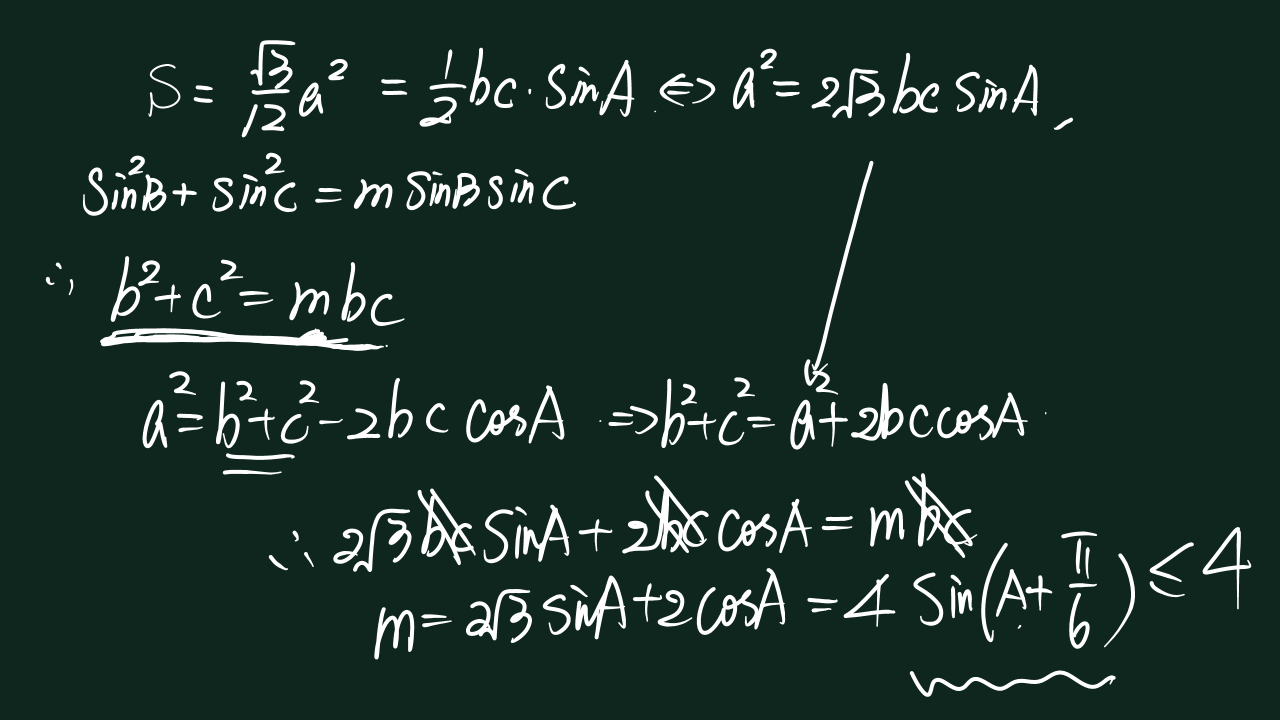 S = √3/12 a² = 1/2 bc · sinA ⇔ a² = 2√3 bc sinA,
sin²B + sin²C = m sinB sinC
∴ b² + c² = mbc
a² = b² + c² - 2bc cosA ⇒ b² + c² = a² + 2bc cosA
∴ 2√3 bc sinA + 2bc cosA = m bc
m = 2√3 sinA + 2cosA = 4 sin(A + π/6) ≤ 4